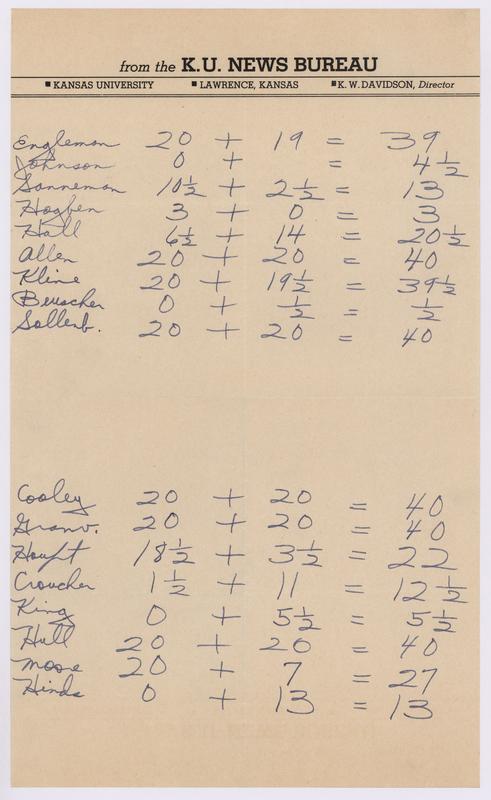 from the K.U. NEWS BUREAU
▪ KANSAS UNIVERSITY ▪ LAWRENCE, KANSAS ▪ K. W. DAVIDSON, Director
Engleman 20 + 19 = 39
Johnson 0 + = 4 1/2
Sonneman 10 1/2 + 2 1/2 = 13
Hogben 3 + 0 = 3
Hall 6 1/2 + 14 = 20 1/2
Allen 20 + 20 = 40
Kline 20 + 19 1/2 = 39 1/2
Beuscher 0 + 1/2 = 1/2
Sollenb. 20 + 20 = 40
Cooley 20 + 20 = 40
Granv. 20 + 20 = 40
Houpt 18 1/2 + 3 1/2 = 22
Croucher 1 1/2 + 11 = 12 1/2
King 0 + 5 1/2 = 5 1/2
Hull 20 + 20 = 40
Moore 20 + 7 = 27
Hinds 0 + 13 = 13